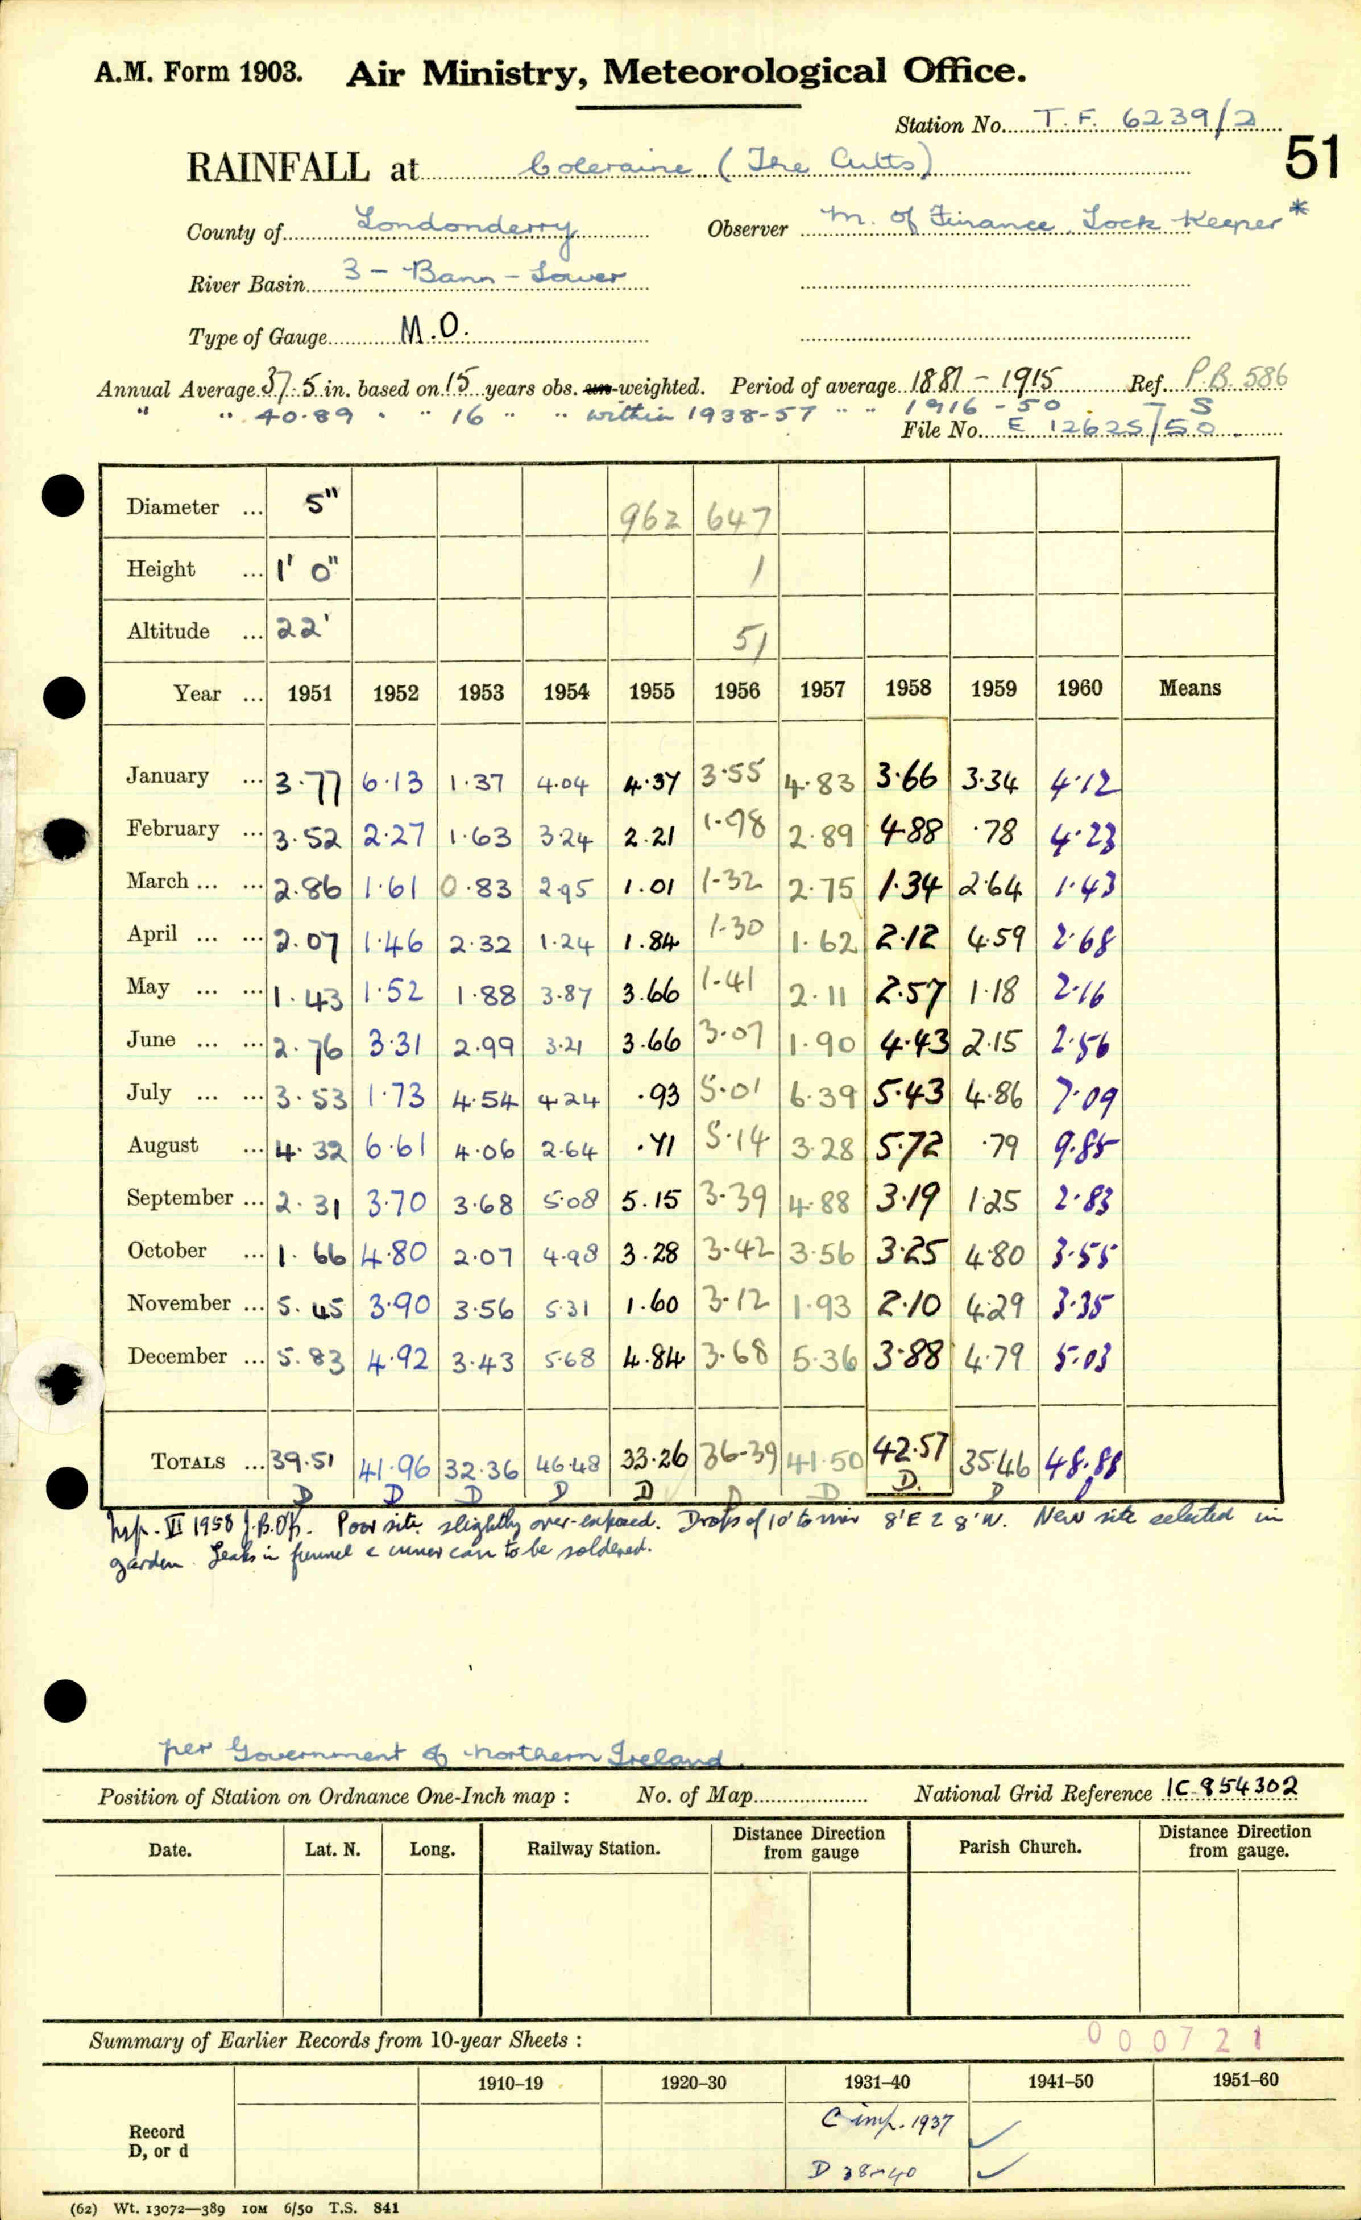 A.M. Form 1903. Air Ministry, Meteorological Office.
Station No. T.F. 6239/2
51
RAINFALL at Coleraine (The Cutts)
County of Londonderry Observer M. of Finance, Lock Keeper *
River Basin 3 - Bann - Lower
Type of Gauge M.O.
Annual Average 37.5 in. based on 15 years obs. un-weighted. Period of average 1881 - 1915 Ref. P.B. 586
" " 40.89 " " 16 " " within 1938-57 " " 1916 - 50
File No. E 12625/50
Diameter ... 5" 962 647
Height ... 1' 0" 1
Altitude ... 22' 51
Year ... 1951 1952 1953 1954 1955 1956 1957 1958 1959 1960 Means
January ... 3.77 6.13 1.37 4.04 4.37 3.55 4.83 3.66 3.34 4.12
February ... 3.52 2.27 1.63 3.24 2.21 1.98 2.89 4.88 .78 4.23
March ... ... 2.86 1.61 0.83 2.95 1.01 1.32 2.75 1.34 2.64 1.43
April ... ... 2.07 1.46 2.32 1.24 1.84 1.30 1.62 2.12 4.59 2.68
May ... ... 1.43 1.52 1.88 3.87 3.66 1.41 2.11 2.57 1.18 2.16
June ... ... 2.76 3.31 2.99 3.21 3.66 3.07 1.90 4.43 2.15 2.56
July ... ... 3.53 1.73 4.54 4.24 .93 5.01 6.39 5.43 4.86 7.09
August ... 4.32 6.61 4.06 2.64 .71 5.14 3.28 5.72 .79 9.85
September ... 2.31 3.70 3.68 5.08 5.15 3.39 4.88 3.19 1.25 2.83
October ... 1.66 4.80 2.07 4.98 3.28 3.42 3.56 3.25 4.80 3.55
November ... 5.45 3.90 3.56 5.31 1.60 3.12 1.93 2.10 4.29 3.35
December ... 5.83 4.92 3.43 5.68 4.84 3.68 5.36 3.88 4.79 5.03
TOTALS ... 39.51 41.96 32.36 46.48 33.26 36.39 41.50 42.57 35.46 48.88
D D D D D D D D. D D
Insp. VI 1958 Poor site slightly over-exposed. Drops of 10' to river 8'E & 8'W. New site selected in
garden. Leaks in funnel & inner can to be soldered.
per Government of Northern Ireland.
Position of Station on Ordnance One-Inch map : No. of Map National Grid Reference IC 854302
Date. Lat. N. Long. Railway Station. Distance Direction from gauge Parish Church. Distance Direction from gauge.
Summary of Earlier Records from 10-year Sheets : 000721
1910–19 1920–30 1931–40 1941–50 1951–60
Record
D, or d
C imp. 1937 ✓
D 38-40 ✓
(62) Wt. 13072—389 10M 6/50 T.S. 841